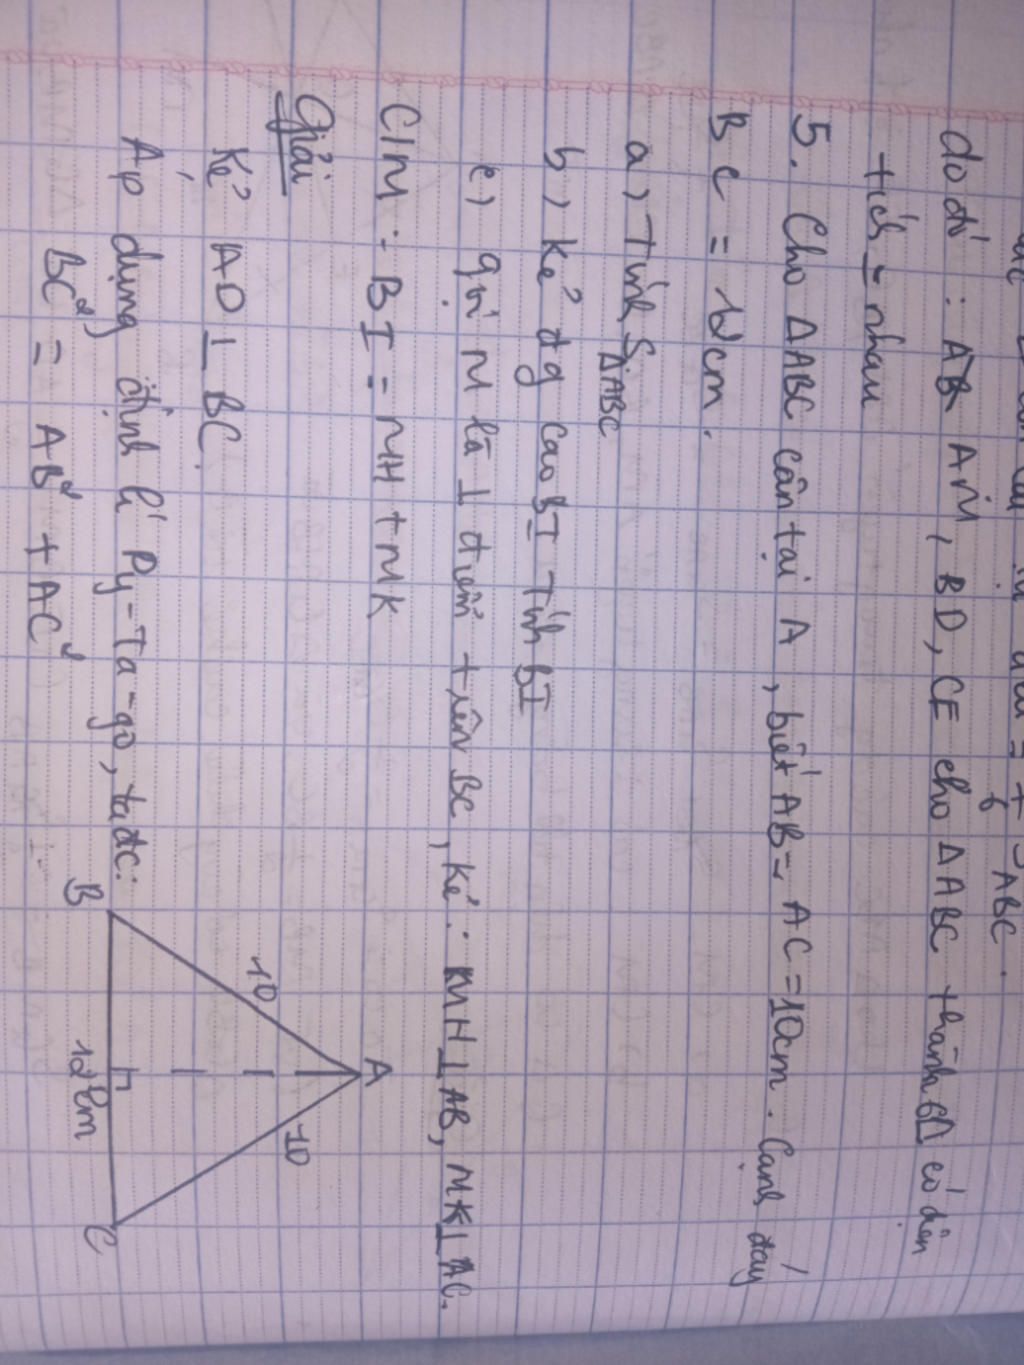 S ABC.
do đó : AM, BD, CF cho ΔABC thành 6Δ có diện
tích = nhau
5. Cho ΔABC cân tại A, biết AB = AC = 10cm. Cạnh đáy
BC = 12cm.
a, Tính S ΔABC
b, Kẻ đg cao BI Tính BI
c, gọi M là 1 điểm trên BC, kẻ : MH ⊥ AB, MK ⊥ AC.
C/M : BI = MH + MK
Giải
Kẻ AD ⊥ BC.
Áp dụng định lí Py-Ta-go, ta đc:
BC² = AB² + AC²
A
10
10
B
12cm
C